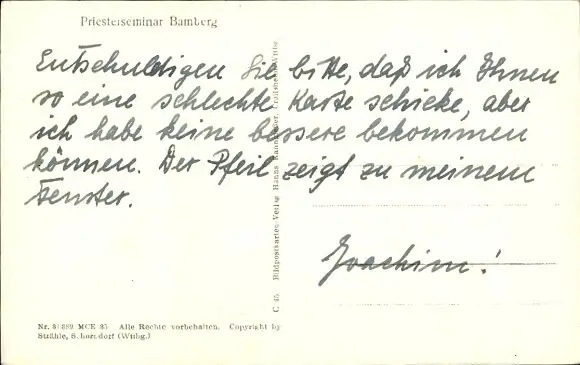 Priesterseminar Bamberg
Entschuldigen Sie bitte, daß ich Ihnen
so eine schlechte Karte schicke, aber
ich habe keine bessere bekommen
können. Der Pfeil zeigt zu meinem
Fenster.
Joachim!
C 45 Bildpostkarten-Verlag Hanns
Nr. 81389 MCE 35 Alle Rechte vorbehalten. Copyright by
Strähle, Schorndorf (Wttbg.)